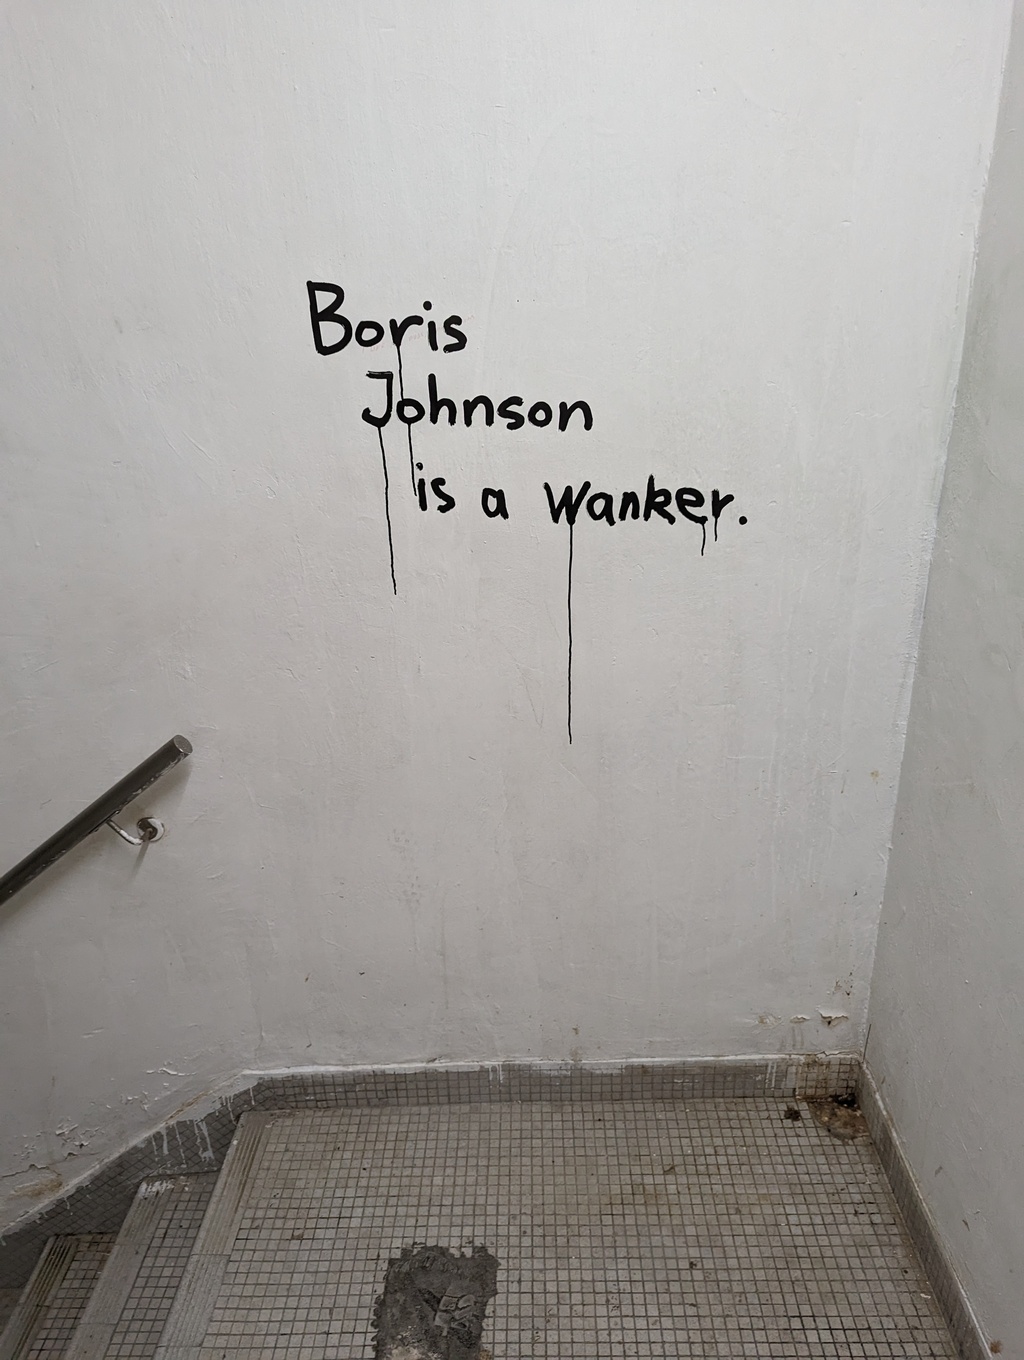 Boris
Johnson
is a Wanker.